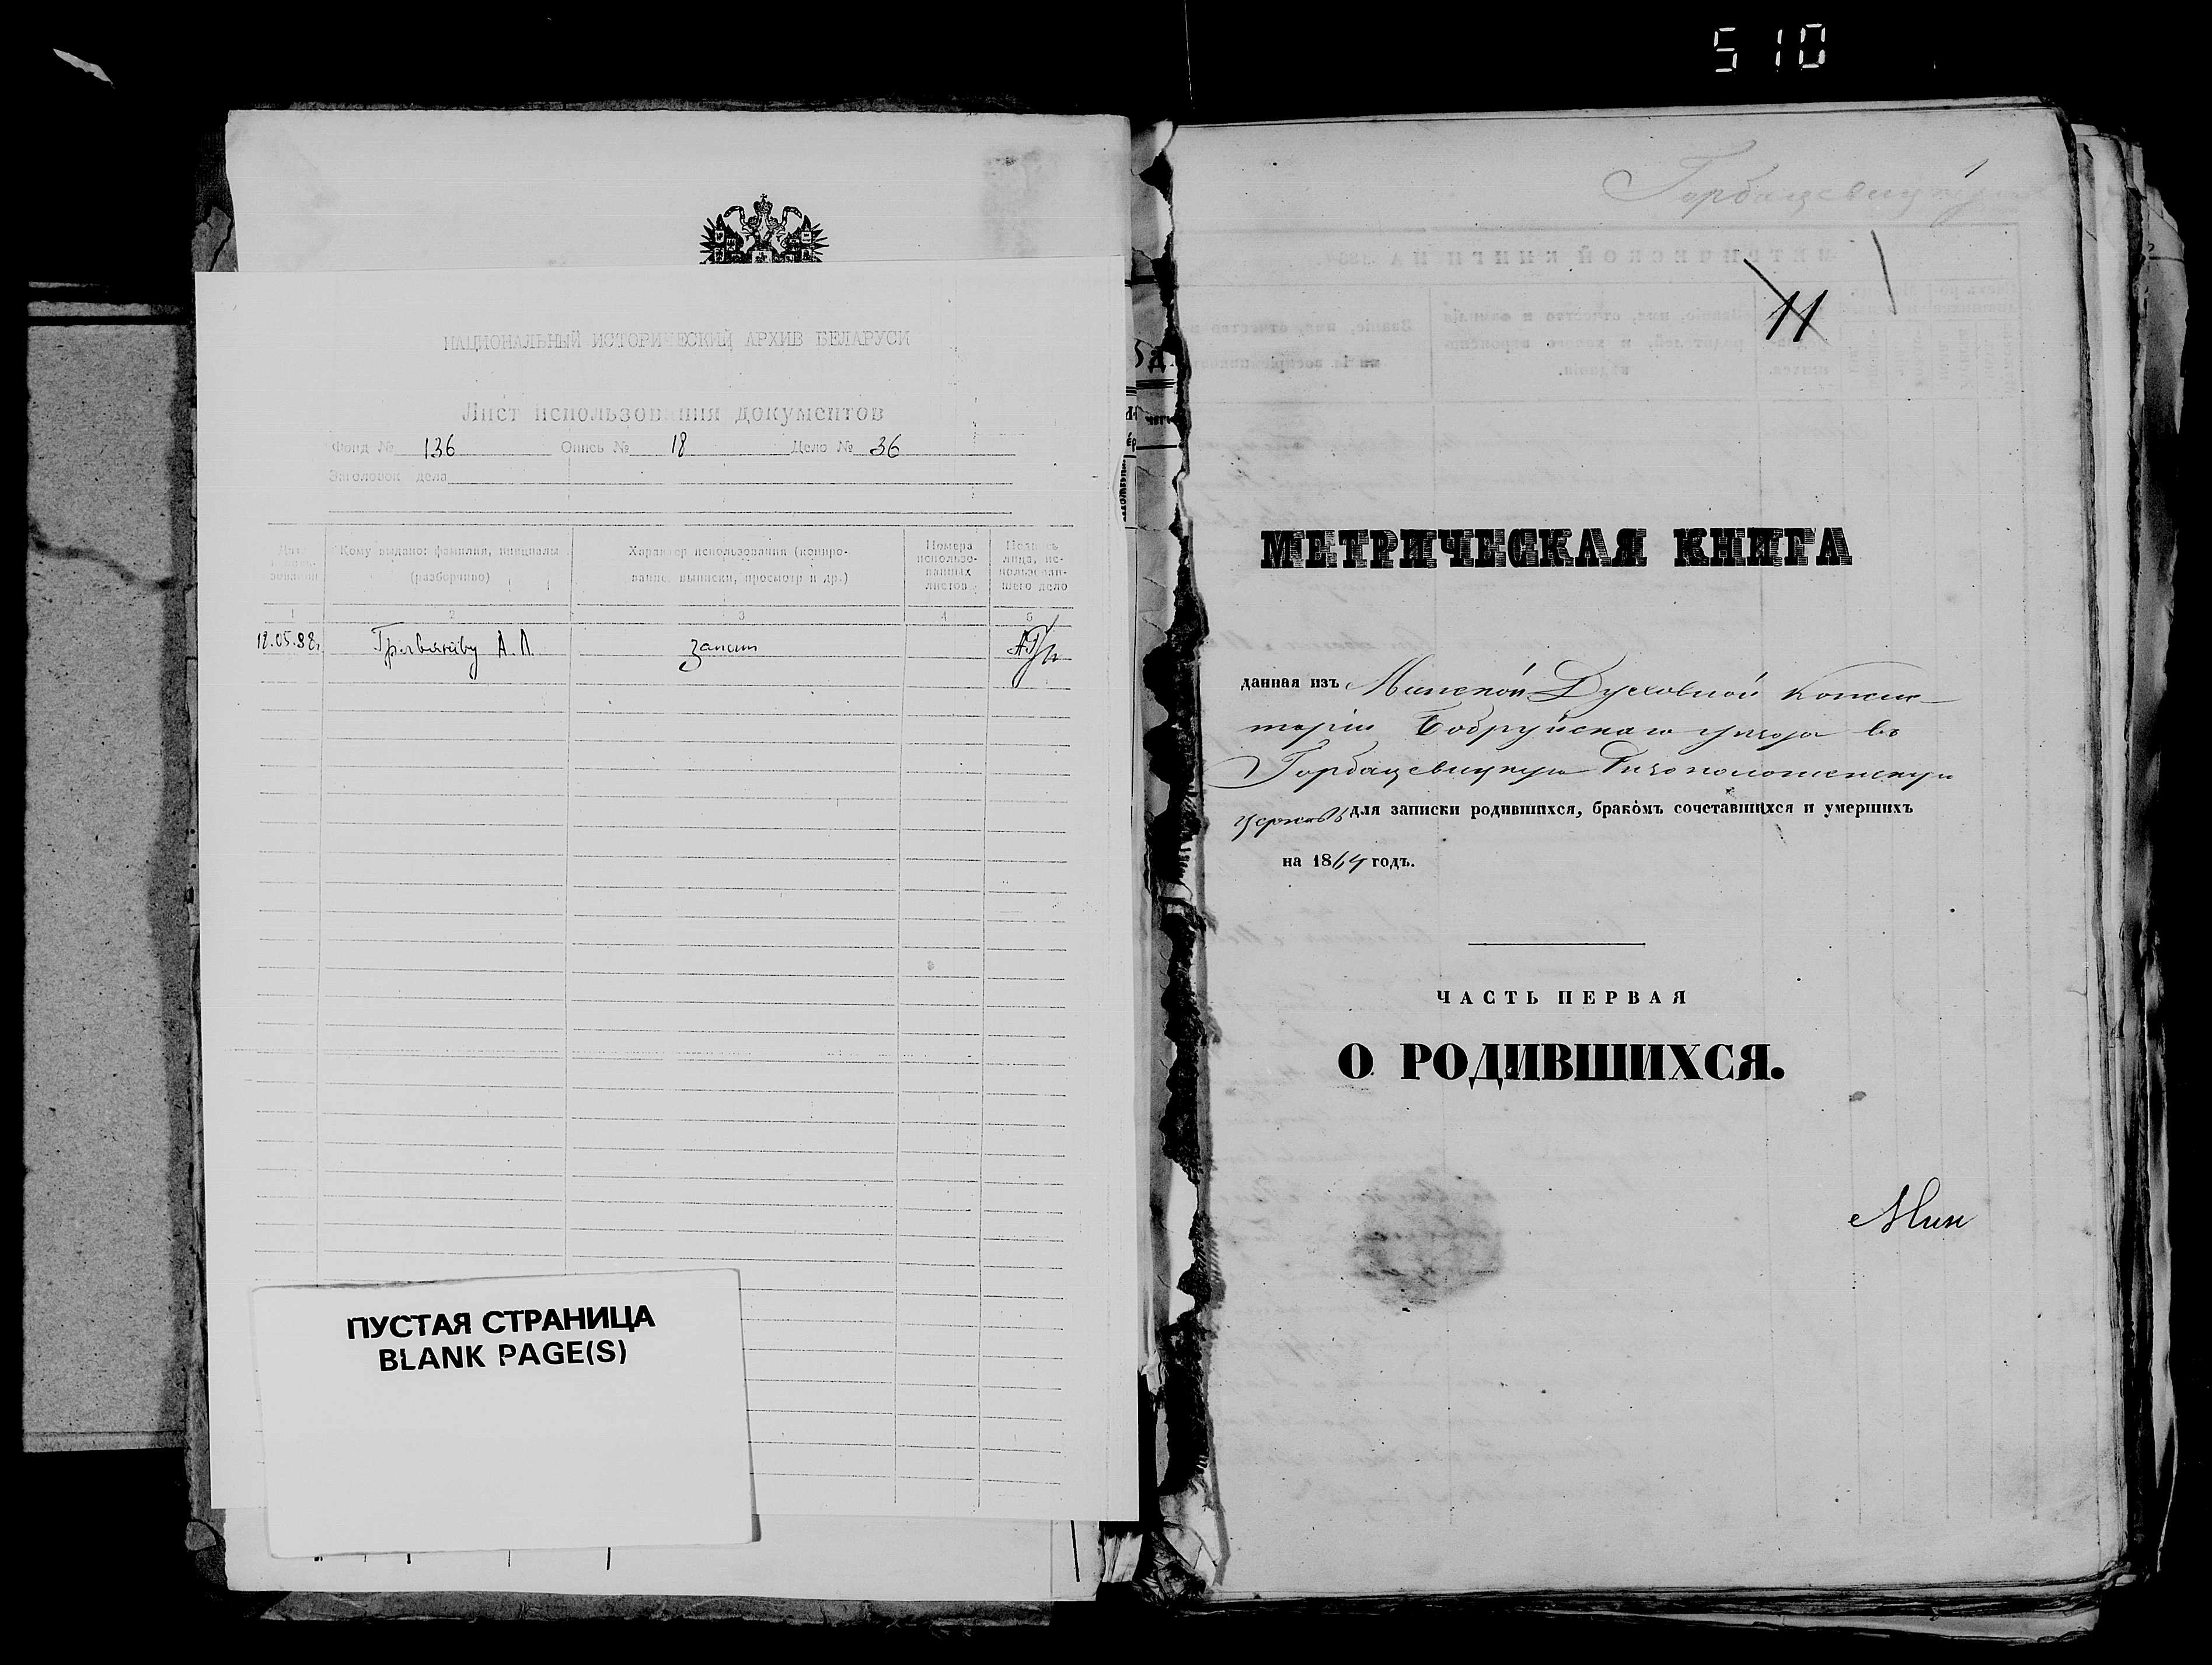 510
НАЦИОНАЛЬНЫЙ ИСТОРИЧЕСКИЙ АРХИВ БЕЛАРУСИ
Лист использования документов
Фонд № 136 Опись № 18 Дело № 36
Заголовок дела
Кому выдано: фамилия, инициалы (разборчиво)
Характер использования (копирование, выписки, просмотр и др.)
Номера использованных листов
Подпись лица, использовавшего дело
1 2 3 4 5
А. П.
ПУСТАЯ СТРАНИЦА
BLANK PAGE(S)
Горбацевичскую
11
МЕТРИЧЕСКАЯ КНИГА
данная изъ Минской Духовной Консис-
торіи Бобруйскаго уѣзда въ
Горбацевичскую Ризоположенскую
церковь для записки родившихся, бракомъ сочетавшихся и умершихъ
на 1864 годъ.
ЧАСТЬ ПЕРВАЯ
О РОДИВШИХСЯ.
Мин